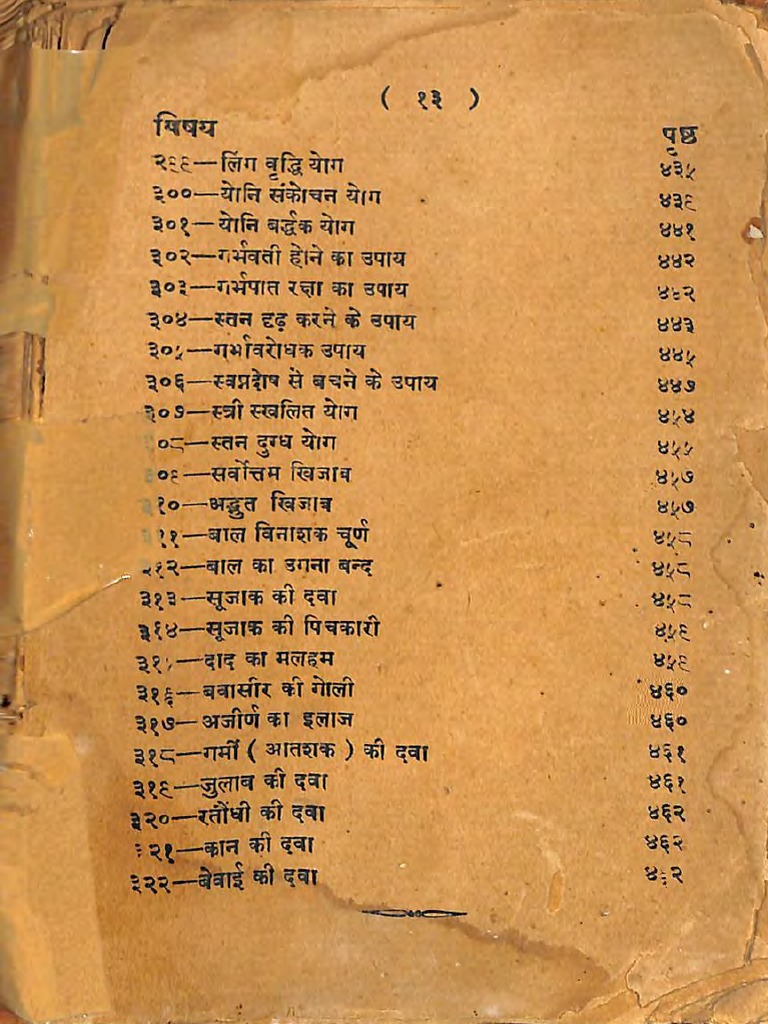 ( १३ )
विषय पृष्ठ
२९९—लिंग वृद्धि योग ४३५
३००—योनि संकोचन योग ४३९
३०१—योनि बर्द्धक योग ४४१
३०२—गर्भवती होने का उपाय ४४२
३०३—गर्भपात रक्षा का उपाय ४४२
३०४—स्तन दृढ़ करने के उपाय ४४३
३०५—गर्भावरोधक उपाय ४४५
३०६—स्वप्नदोष से बचने के उपाय ४४७
३०७—स्त्री स्खलित योग ४५४
०८—स्तन दुग्ध योग ४५५
३०९—सर्वोत्तम खिजाब ४५७
३१०—अद्भुत खिजाब ४५७
३११—बाल विनाशक चूर्ण ४५८
३१२—बाल का उगना बन्द ४५८
३१३—सूजाक की दवा ४५८
३१४—सूजाक की पिचकारी ४५९
३१५—दाद का मलहम ४५९
३१६—बवासीर की गोली ४६०
३१७—अजीर्ण का इलाज ४६०
३१८—गर्मी ( आतशक ) की दवा ४६१
३१९—जुलाब की दवा ४६१
३२०—रतौंधी की दवा ४६२
३२१—कान की दवा ४६२
३२२—बेवाई की दवा ४६२